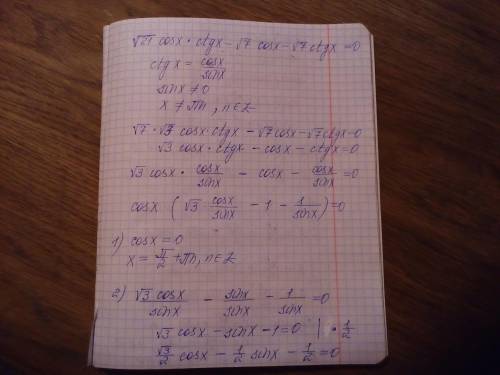 √21 cosx · ctgx - √7 cosx - √7 ctgx = 0
ctgx = cosx/sinx
sinx ≠ 0
x ≠ πn, n∈Z
√7 · √3 cosx · ctgx - √7 cosx - √7 ctgx = 0
√3 cosx · ctgx - cosx - ctgx = 0
√3 cosx · cosx/sinx - cosx - cosx/sinx = 0
cosx (√3 cosx/sinx - 1 - 1/sinx) = 0
1) cosx = 0
x = π/2 + πn, n∈Z
2) √3 cosx/sinx - sinx/sinx - 1/sinx = 0
√3 cosx - sinx - 1 = 0 | · 1/2
√3/2 cosx - 1/2 sinx - 1/2 = 0